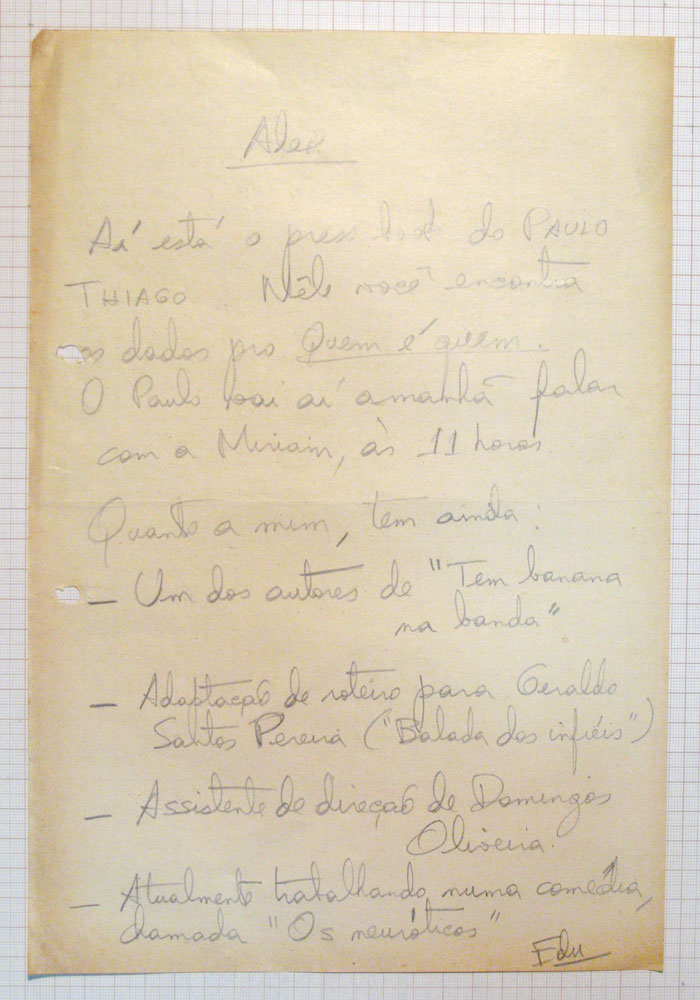 Alex
Aí está o press book do PAULO
THIAGO. Nêle você encontra
os dados pro Quem é quem.
O Paulo vai aí amanhã falar
com a Miriam, às 11 horas
Quanto a mim, tem ainda:
— Um dos autores de "Tem banana
na banda".
— Adaptação de roteiro para Geraldo
Santos Pereira ("Balada dos infiéis")
— Assistente de direção de Domingos
Oliveira.
— Atualmente trabalhando numa comédia,
chamada "Os neuróticos"
Edu